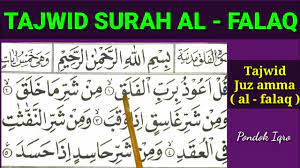 TAJWID SURAH AL - FALAQ
بِسْمِ اللهِ الرَّحْمٰنِ الرَّحِيْمِ
قُلْ اَعُوْذُ بِرَبِّ الْفَلَقِ مِنْ شَرِّ مَا خَلَقَ
وَمِنْ شَرِّ غَاسِقٍ اِذَا وَقَبَ وَمِنْ شَرِّ النَّفّٰثٰتِ
فِى الْعُقَدِ وَمِنْ شَرِّ حَاسِدٍ
Tajwid
Juz amma
( al - falaq )
Pondok Iqro